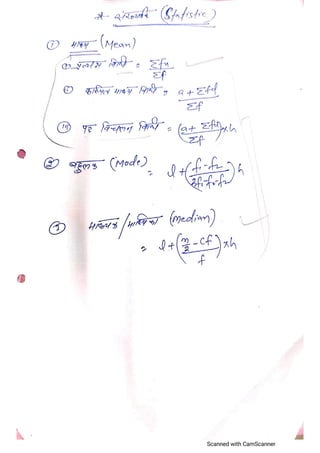 सांख्यिकी (Statistic)
① माध्य (Mean)
① प्रत्यक्ष विधि = Σfx / Σf
② कल्पित माध्य विधि = a + Σfd / Σf
(iii) पद विचलन विधि = (a + Σfu / Σf) x h
② बहुलक (Mode) = l + (f1 - f2 / 2f1 - f0 - f2) h
③ माध्यक / माध्यिका (Median)
= l + (n/2 - cf / f) x h
Scanned with CamScanner